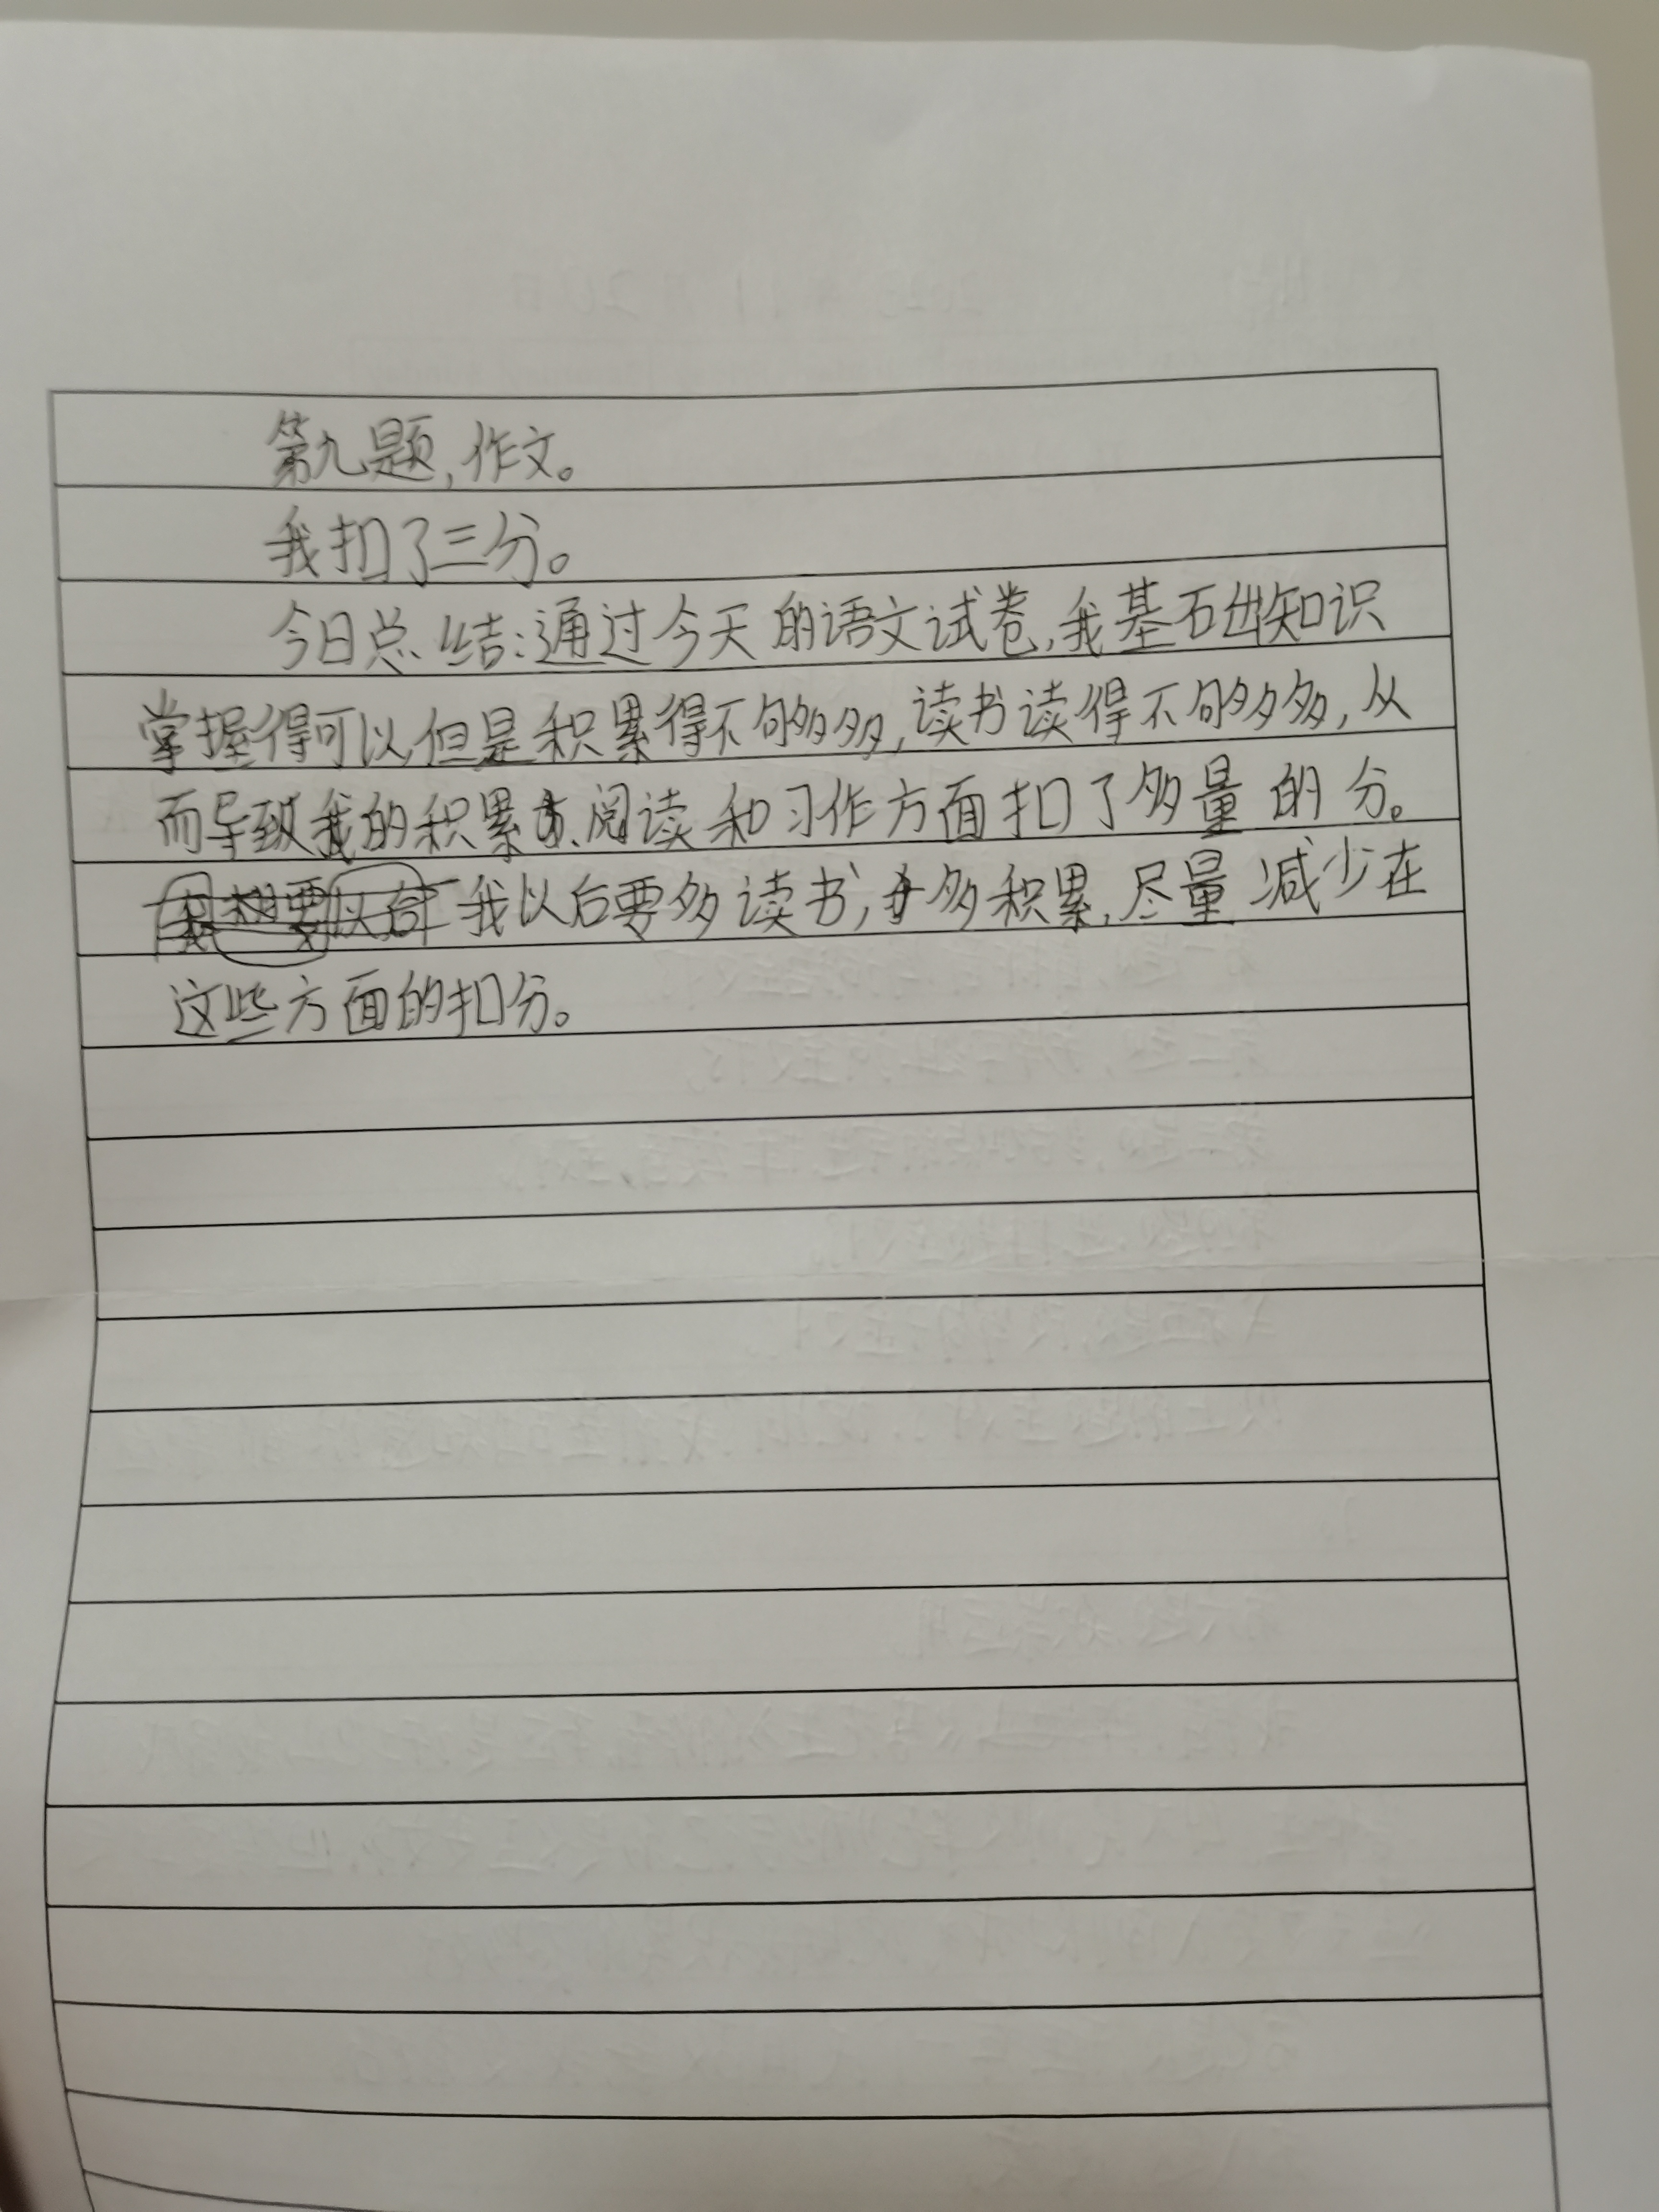 第九题,作文。
我扣了三分。
今日总结:通过今天的语文试卷,我基础知识
掌握得可以,但是积累得不够多,读书读得不够多,从
而导致我的积累、阅读和习作方面扣了多量的分。
我以后要多读书,多积累,尽量减少在
这些方面的扣分。